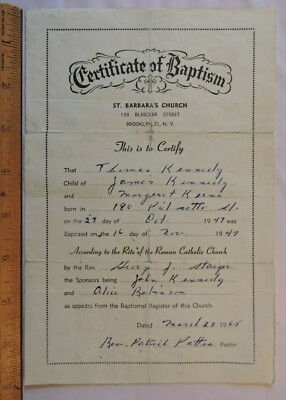 Certificate of Baptism
ST. BARBARA'S CHURCH
138 BLEECKER STREET
BROOKLYN 21, N. Y.
This is to Certify
That Thomas Kennedy
Child of James Kennedy
and Margaret Kerns
born in 180 St.
on the 27 day of Oct 1947 was
Baptized on the 16 day of Nov. 1947
According to the Rite of the Roman Catholic Church
by the Rev. George J.
the Sponsors being John Kennedy
and Alice Robinson
as appears from the Baptismal Register of this Church.
Dated March 28 1948
Rev. Patrick Pastor